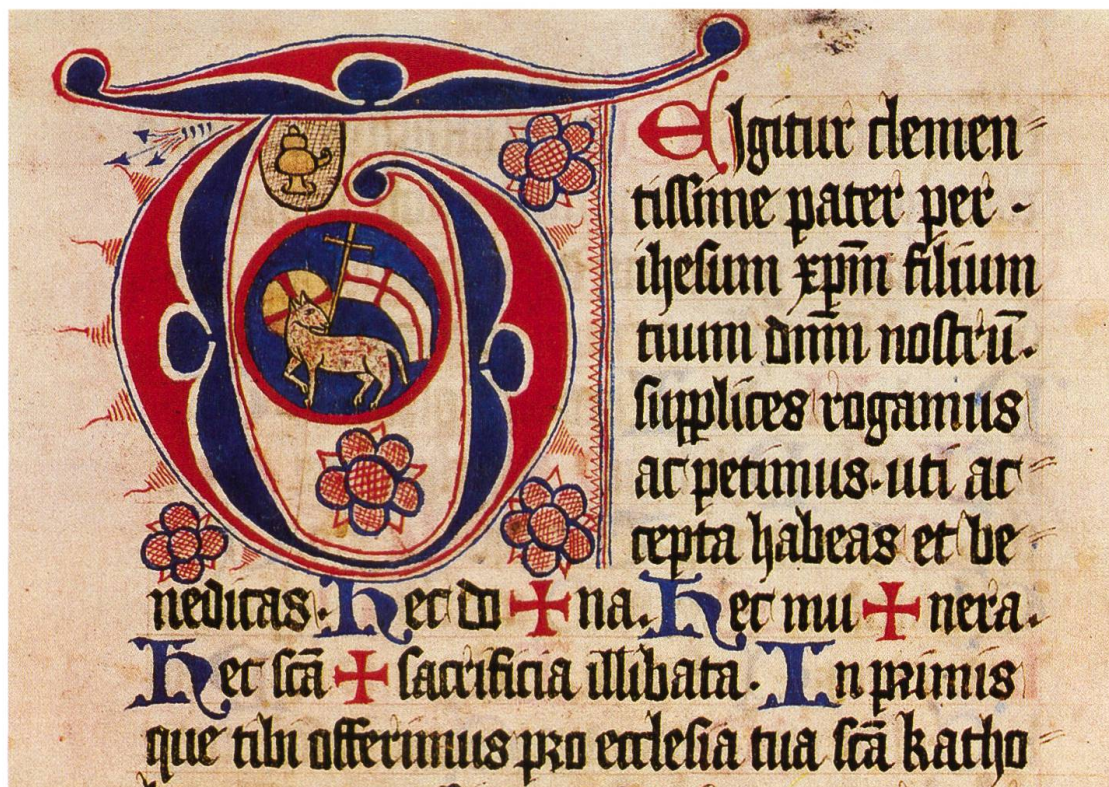 TE Igitur clemen
tissime pater per
ihesum xp̄m filium
tuum dn̄m nostrū.
supplices rogamus
ac petimus. uti ac
cepta habeas et be
nedicas. Hec do ✚ na. Hec mu ✚ nera.
Hec sc̄a ✚ sacrificia illibata. In primis
que tibi offerimus pro ecclesia tua sc̄a katho